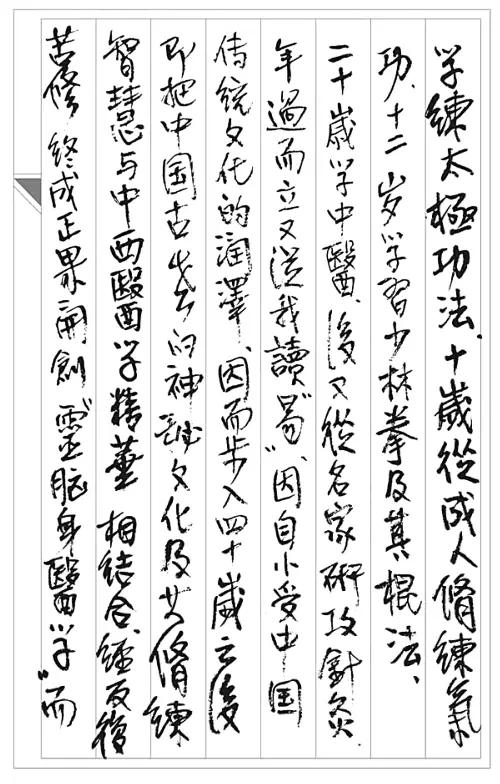 学練太極功法、十歲從成人脩練氣
功、十二岁学習少林拳及其棍法、
二十歲学中醫、後又從名家研攻針灸、
年過而立又从我讀“易”、因自小受中国
传统文化的润澤、因而步入四十歲之後
即把中国古老的神秘文化及其脩練
智慧与中西醫学精華相結合、經反復
苦修终成正果開創“靈脑身醫学”而